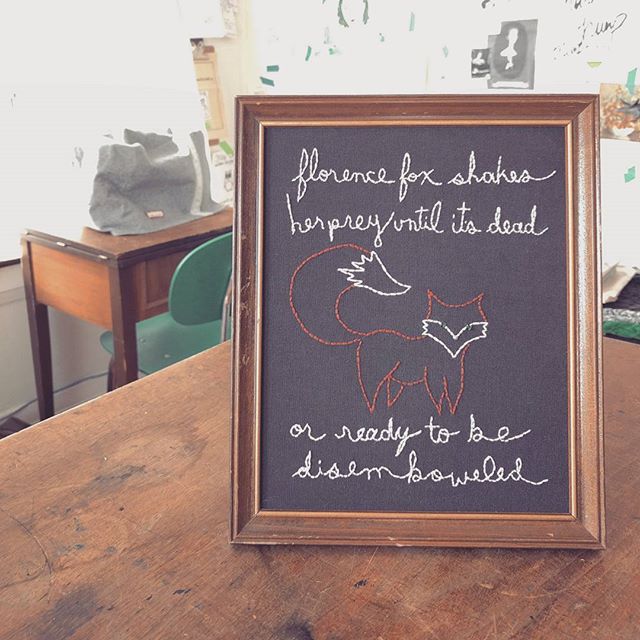 florence fox shakes
her prey until its dead
or ready to be
disemboweled